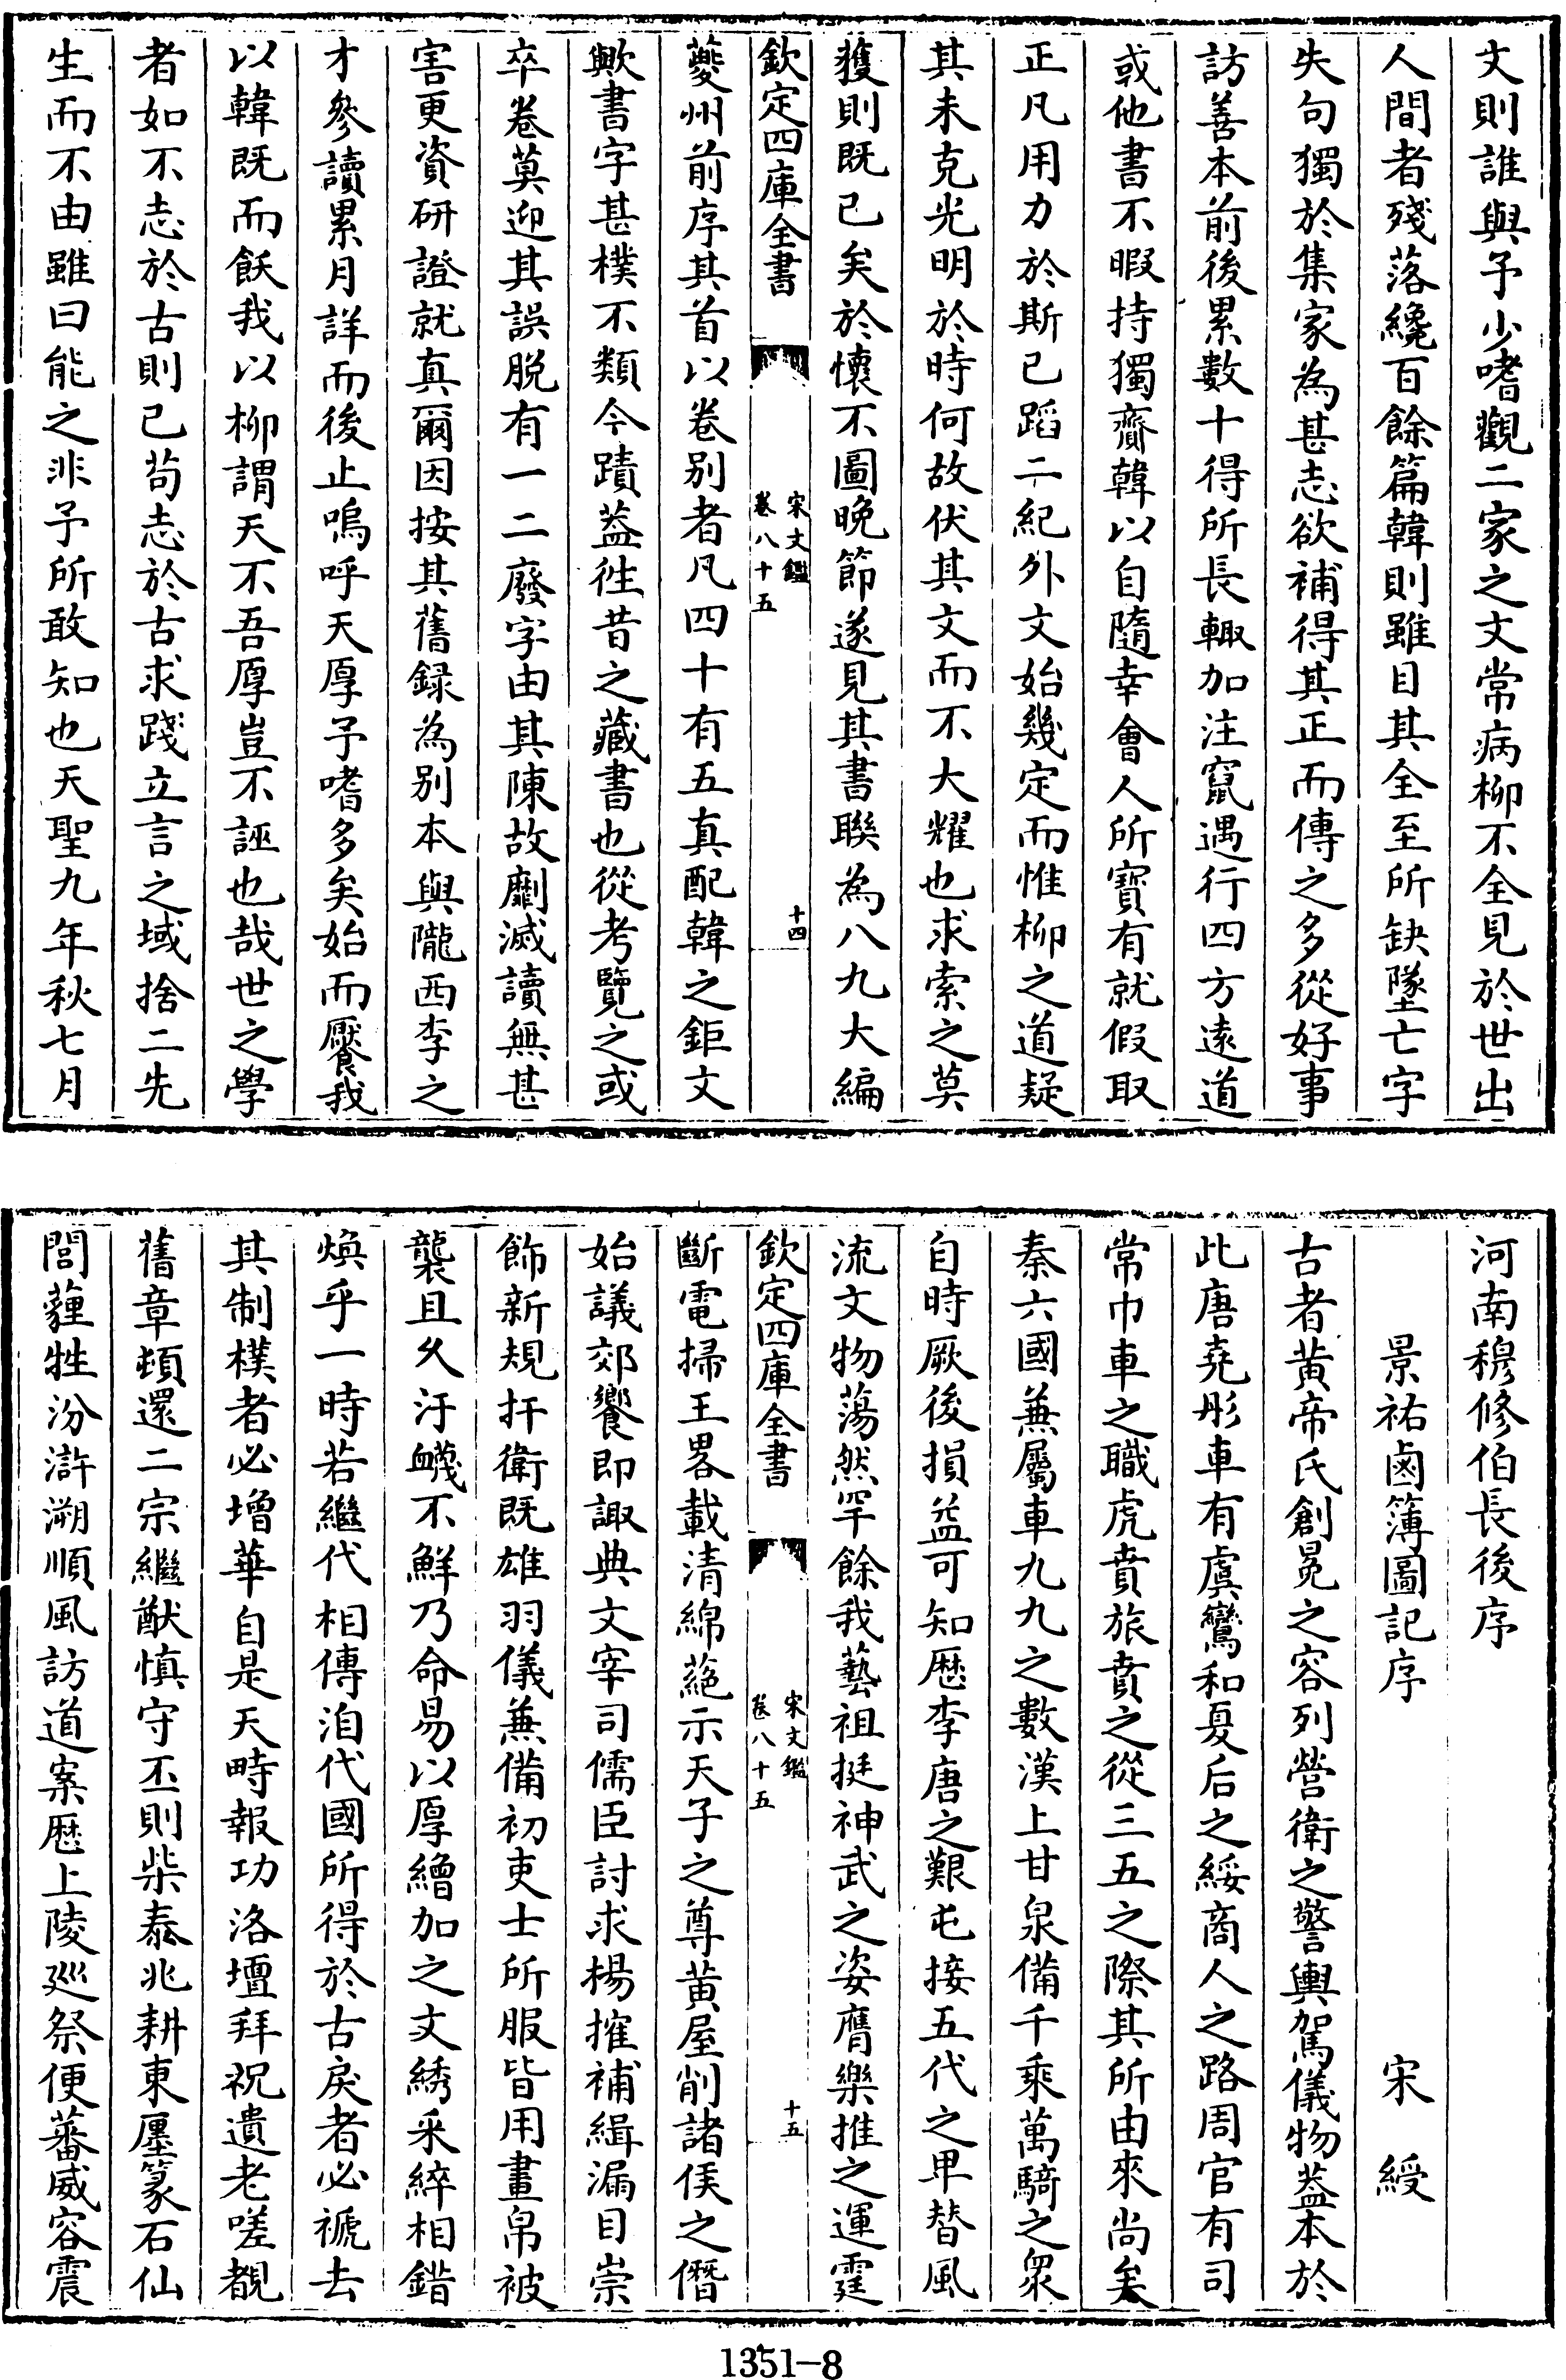 文則誰與予少嗜觀二家之文常病柳不全見於世出
人間者殘落纔百餘篇韓則雖目其全至所缺墜亡字
失句獨於集家為甚志欲補得其正而傳之多從好事
訪善本前後累數十得所長輙加注竄遇行四方逺道
或他書不暇持獨齎韓以自隨幸會人所寳有就假取
正凡用力於斯已蹈二紀外文始幾定而惟柳之道疑
其未克光明於時何故伏其文而不大耀也求索之莫
獲則既已矣於懷不圖晚節遂見其書聨為八九大編
欽定四庫全書
宋文鑑
卷八十五
十四
夔州前序其首以卷别者凡四十有五真配韓之鉅文
歟書字甚樸不類今蹟葢徃昔之藏書也從考覽之或
卒卷莫迎其誤脱有一二廢字由其陳故劘滅讀無甚
害更資研證就真爾因按其舊録為别本與隴西李之
才參讀累月詳而後止嗚呼天厚予嗜多矣始而饜我
以韓既而飫我以柳謂天不吾厚豈不誣也哉世之學
者如不志於古則已茍志於古求踐立言之域捨二先
生而不由雖曰能之非予所敢知也天聖九年秋七月
河南穆修伯長後序
景祐鹵簿圖記序　宋　綬
古者黄帝氏創冕之容列營衛之警輿駕儀物葢本於
此唐堯彤車有虞鸞和夏后之綏商人之路周官有司
常巾車之職虎賁旅賁之從三五之際其所由來尚矣
秦六國兼屬車九九之數漢上甘泉備千乘萬騎之衆
自時厥後損益可知歴李唐之艱屯接五代之卑替風
流文物蕩然罕餘我藝祖挺神武之姿膺樂推之運霆
欽定四庫全書
宋文鑑
卷八十五
十五
斷電掃王畧載清綿蕝示天子之尊黄屋削諸侯之僭
始議郊饗即諏典文宰司儒臣討求揚搉補緝漏目崇
飾新規扞衛既雄羽儀兼備初吏士所服皆用畫帛被
襲且久汙衊不鮮乃命易以厚繒加之文綉采綷相錯
煥乎一時若繼代相傳洎代國所得於古戾者必禠去
其制樸者必增華自是天畤報功洛壇拜祝遺老嗟覩
舊章頓還二宗繼猷慎守丕則柴泰兆耕東㕓篆石仙
閭薶牲汾滸溯順風訪道案歴上陵廵祭便蕃威容震
1351-8